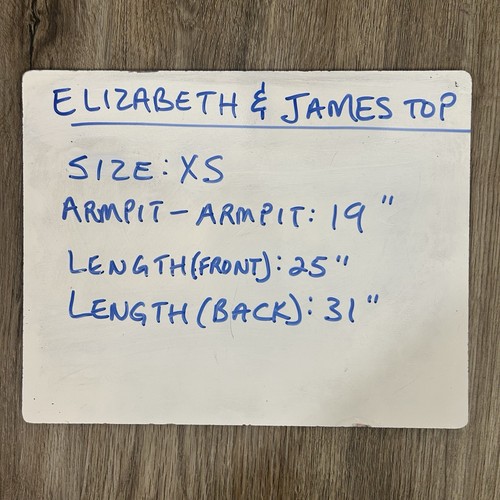 ELIZABETH & JAMES TOP
SIZE: XS
ARMPIT - ARMPIT: 19"
LENGTH (FRONT): 25"
LENGTH (BACK): 31"